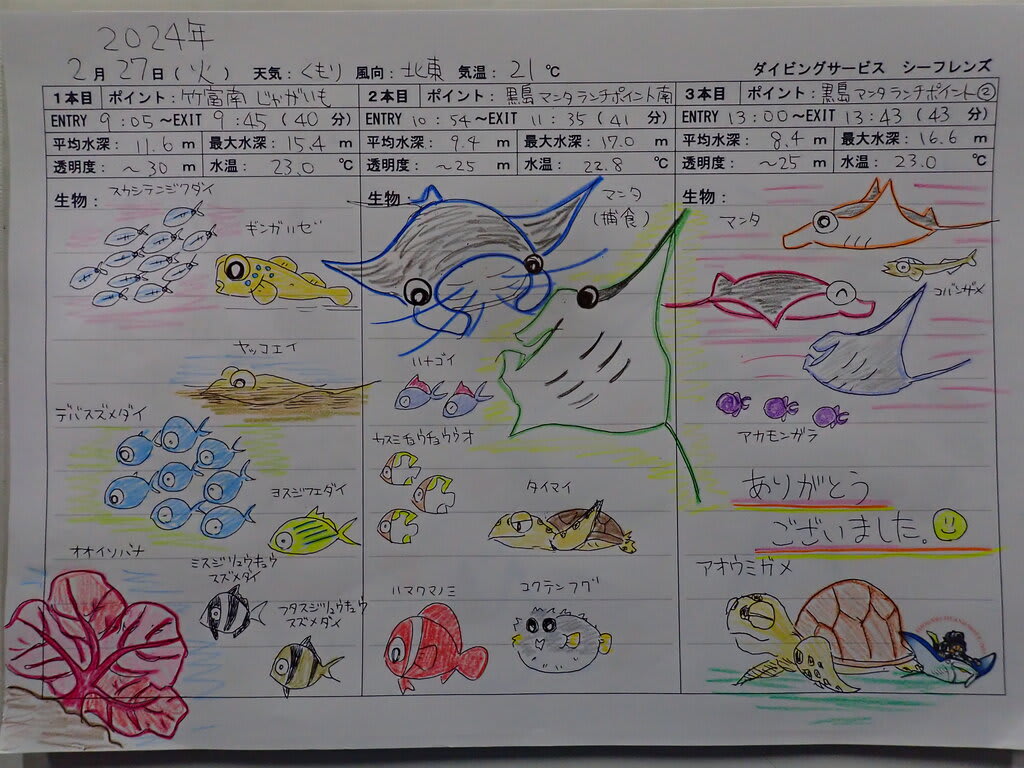 2024年
2月27日(火) 天気:くもり 風向:北東 気温:21℃ ダイビングサービス シーフレンズ
1本目 ポイント:竹富南 じゃがいも
ENTRY 9:05～EXIT 9:45 (40 分)
平均水深: 11.6 m 最大水深: 15.4 m
透明度: ～30 m 水温: 23.0 ℃
生物:
スカシテンジクダイ
ギンガハゼ
ヤッコエイ
デバスズメダイ
ヨスジフエダイ
オオイソバナ
ミスジリュウキュウ
スズメダイ
フタスジリュウキュウ
スズメダイ
2本目 ポイント:黒島マンタランチポイント南
ENTRY 10:54～EXIT 11:35 (41 分)
平均水深: 9.4 m 最大水深: 17.0 m
透明度: ～25 m 水温: 22.8 ℃
生物:
マンタ
(捕食)
ハナゴイ
カスミチョウチョウウオ
タイマイ
ハマクマノミ
コクテンフグ
3本目 ポイント:黒島マンタランチポイント②
ENTRY 13:00～EXIT 13:43 (43 分)
平均水深: 8.4 m 最大水深: 16.6 m
透明度: ～25 m 水温: 23.0 ℃
生物:
マンタ
コバンザメ
アカモンガラ
ありがとう
ございました。
アオウミガメ